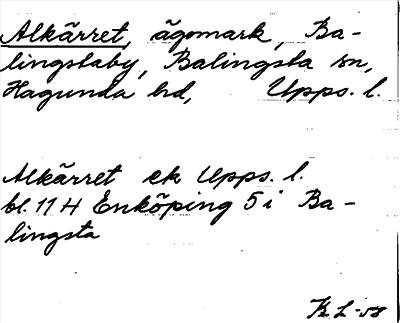 Alkärret, ägomark, Ba-
lingstaby, Balingsta sn,
Hagunda hd, Upps. l.
Alkärret ek Upps. l.
bl. 11 H Enköping 5 i Ba-
lingsta
KL-58